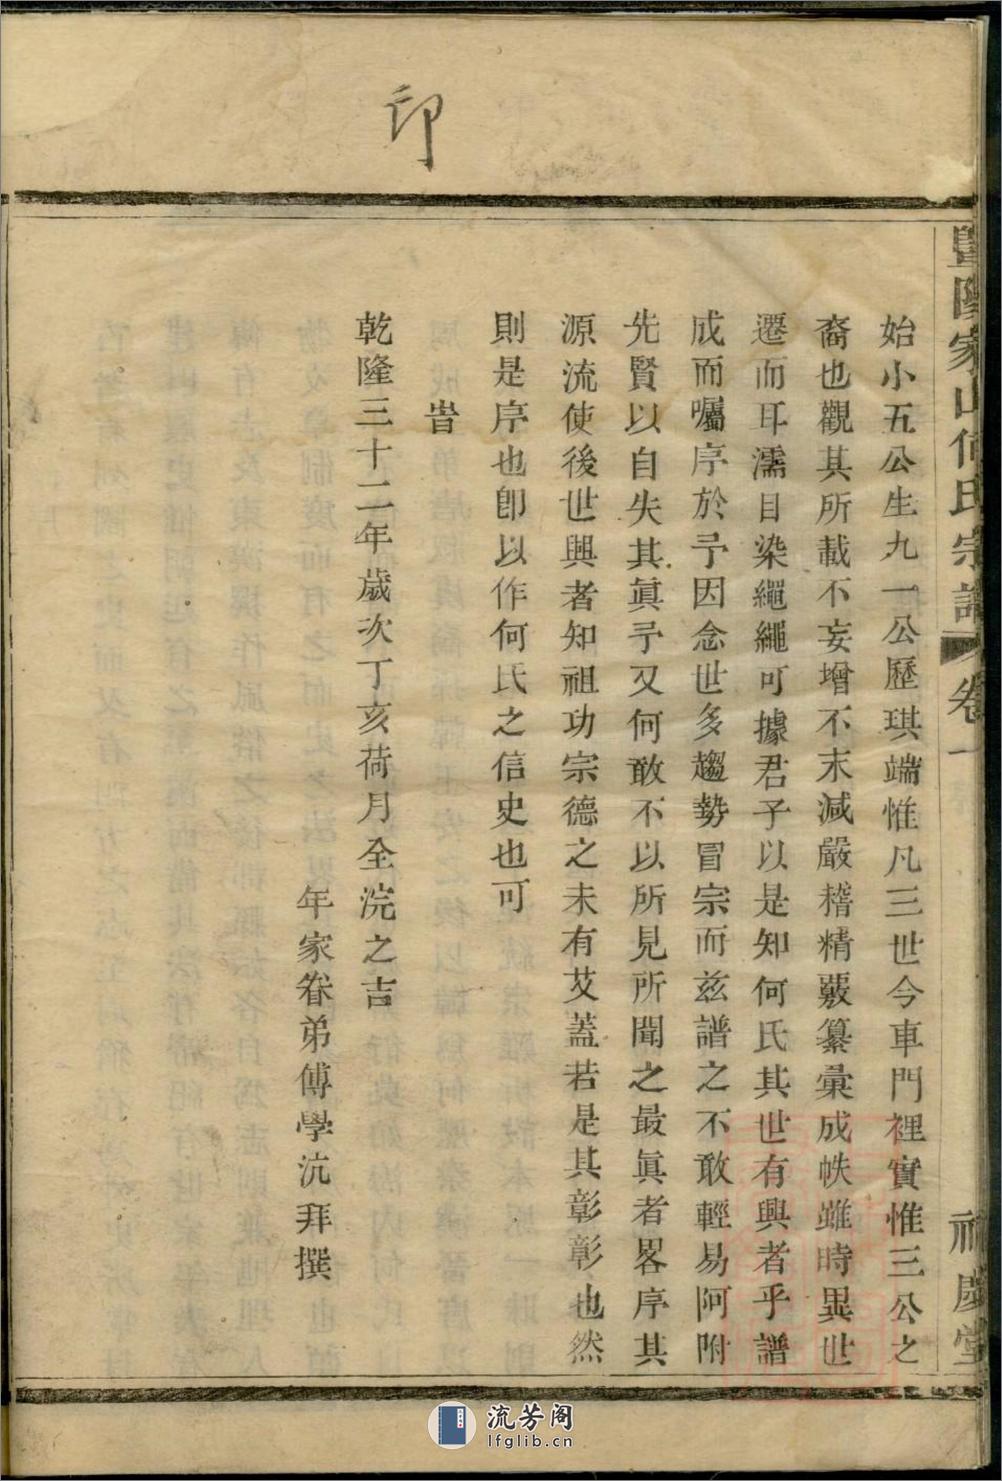 印
暨陽家山何氏宗譜 卷一 
始小五公生九一公歷琪端惟凡三世今車門裡實惟三公之
裔也觀其所載不妄增不末減嚴稽精覈纂彙成帙雖時異世
遷而耳濡目染繩繩可據君子以是知何氏其世有興者乎譜
成而囑序於予因念世多趨勢冒宗而茲譜之不敢輕易阿附
先賢以自失其眞予又何敢不以所見所聞之最眞者畧序其
源流使後世興者知祖功宗德之未有艾蓋若是其彰彰也然
則是序也卽以作何氏之信史也可
旹
乾隆三十二年歲次丁亥荷月全浣之吉
年家眷弟傅學沆拜撰
流芳阁
lfglib.cn